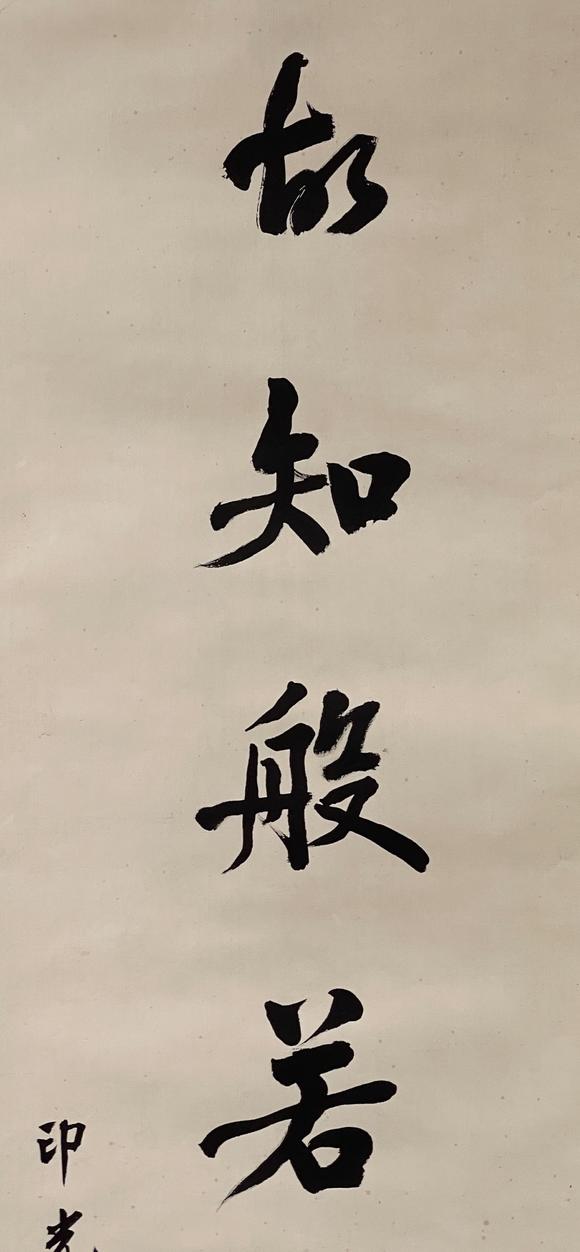 故知般若
印光